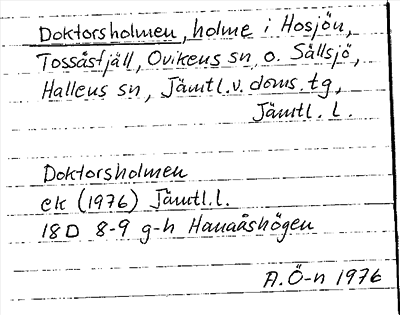 Doktorsholmen, holme i Hosjön,
Tossåsfjäll, Ovikens sn, o. Sällsjö,
Hallens sn, Jämtl. v. doms. tg,
Jämtl. l.
Doktorsholmen
ek (1976) Jämtl. l.
18D 8-9 g-h Hanaåshögen
A. Ö-n 1976